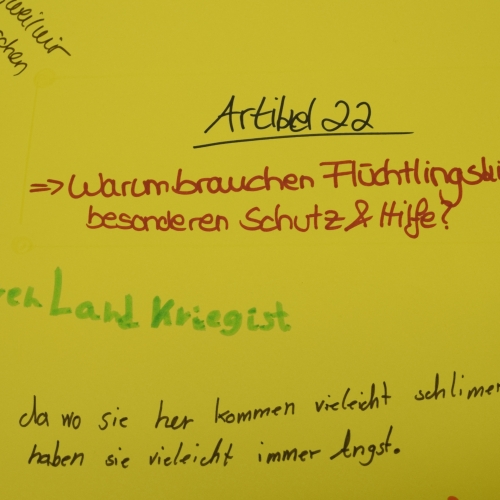 weil wir
Artikel 22
=> Warum brauchen Flüchtlingski
besonderen Schutz & Hilfe?
ren Land Krieg ist
da wo sie her kommen vieleicht schlimer
haben sie vieleicht immer Angst.